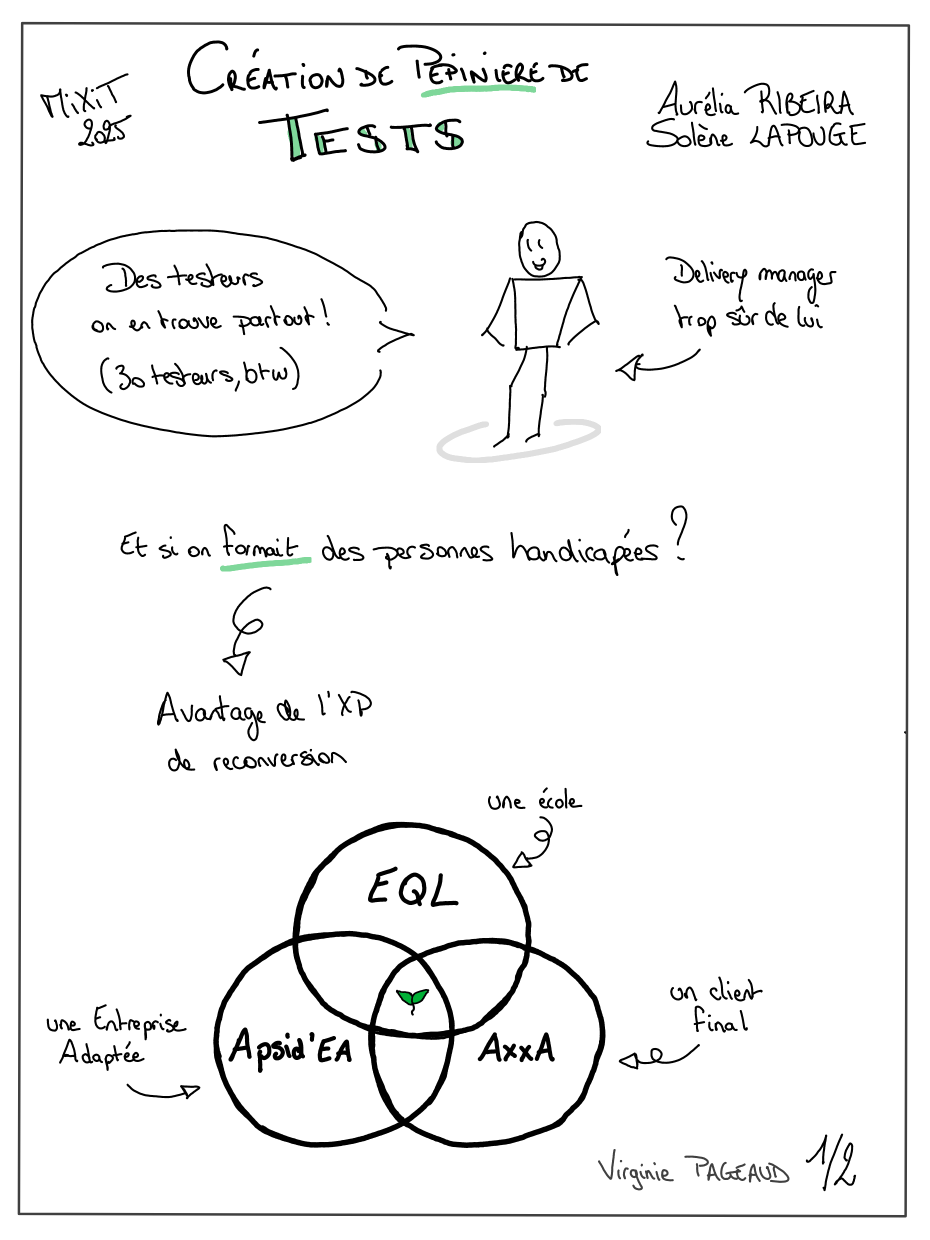 MiXiT
2025
CRÉATION DE PÉPINIÈRE DE
TESTS
Aurélia RIBEIRA
Solène LAPOUGE
Des testeurs
on en trouve partout !
(30 testeurs, btw)
Delivery manager
trop sûr de lui
Et si on formait des personnes handicapées ?
Avantage de l'XP
de reconversion
une école
EQL
une Entreprise
Adaptée
Apsid'EA
AxxA
un client
final
Virginie PAGEAUD 1/2